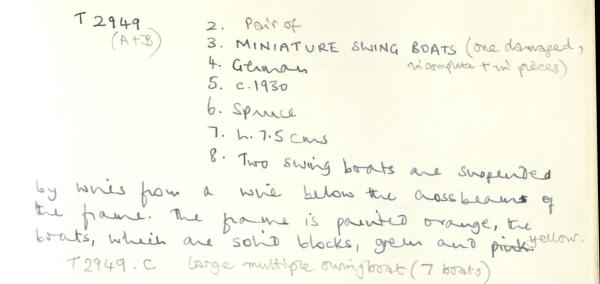 T 2949 2. Pair of
(A+B) 3. MINIATURE SWING BOATS (one damaged,
4. German incomplete + in pieces)
5. c.1930
6. Spruce
7. h. 7.5 cms
8. Two swing boats are suspended
by wires from a wire below the crossbeams of
the frame. The frame is painted orange, the
boats, which are solid blocks, green and pink yellow.
T2949.C Large multiple swingboat (7 boats)